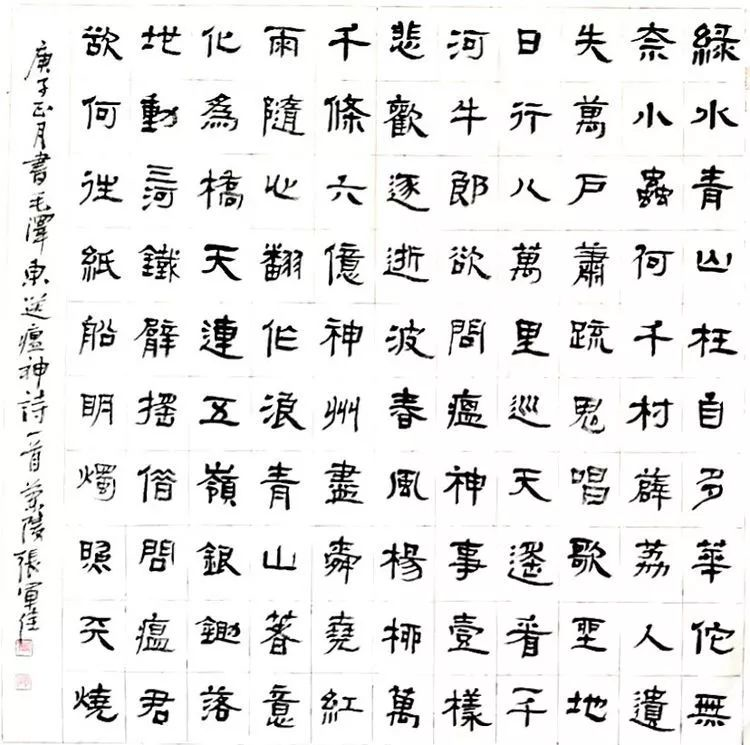 綠水青山枉自多華佗無
奈小蟲何千村薜荔人遺
失萬戶蕭疏鬼唱歌坐地
日行八萬里巡天遙看一千
河牛郎欲問瘟神事壹樣
悲歡逐逝波春風楊柳萬
千條六億神州盡舜堯紅
雨隨心翻作浪青山著意
化爲橋天連五嶺銀鋤落
地動三河鐵臂搖借問瘟君
欲何往紙船明燭照天燒
庚子正月書毛澤東送瘟神詩一首蘭陵張軍